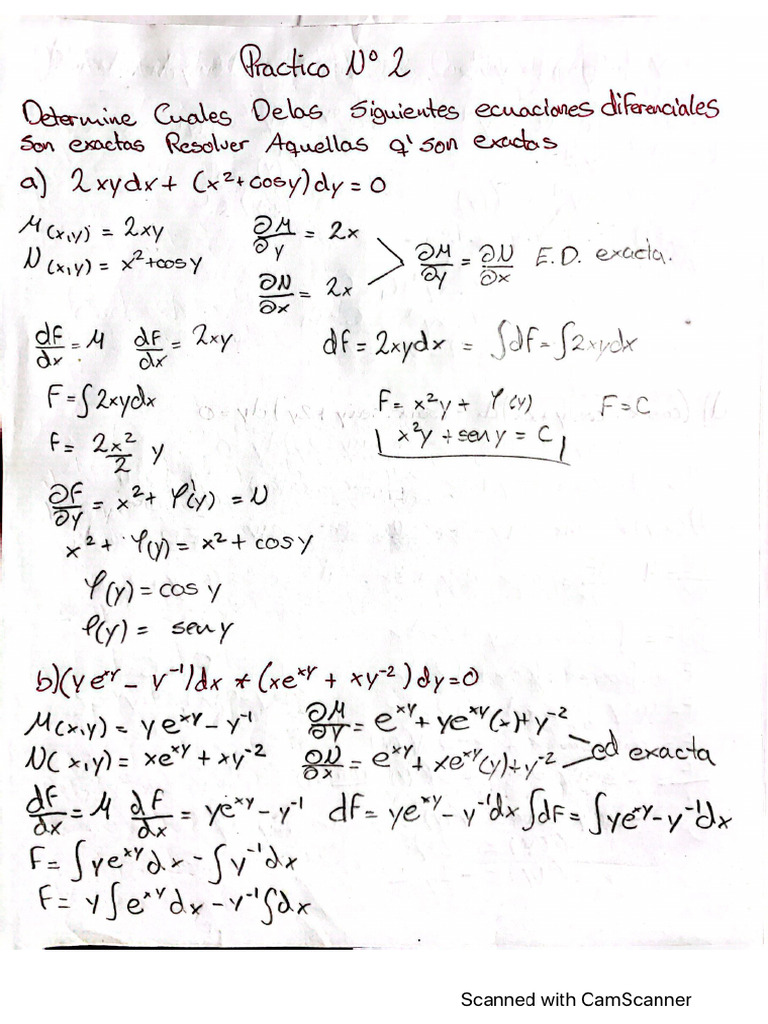 Practico Nº 2
Determine Cuales Delas Siguientes ecuaciones diferenciales
Son exactas Resolver Aquellas q' son exactas
a) 2xydx + (x²+cosy)dy = 0
M(x,y) = 2xy ∂M/∂y = 2x
N(x,y) = x²+cosy ∂N/∂x = 2x ∂M/∂y = ∂N/∂x E.D. exacta.
dF/dx = M dF/dx = 2xy dF = 2xydx = ∫dF = ∫2xydx
F = ∫2xydx F = x²y + φ(y) F = C
F = 2x²/2 y x²y + sen y = C
∂F/∂y = x² + φ'(y) = N
x² + φ(y) = x² + cosy
φ(y) = cos y
φ(y) = sen y
b)(ye^xy - y^-1)dx + (xe^xy + xy^-2)dy=0
M(x,y) = ye^xy - y^-1 ∂M/∂y = e^xy + ye^xy(x)+y^-2
N(x,y) = xe^xy + xy^-2 ∂N/∂x = e^xy + xe^xy(y)+y^-2 ed exacta
dF/dx = M dF/dx = ye^xy - y^-1 dF = ye^xy - y^-1dx ∫dF = ∫ye^xy - y^-1dx
F = ∫ye^xy dx - ∫y^-1dx
F = y∫e^xy dx - y^-1∫dx
Scanned with CamScanner